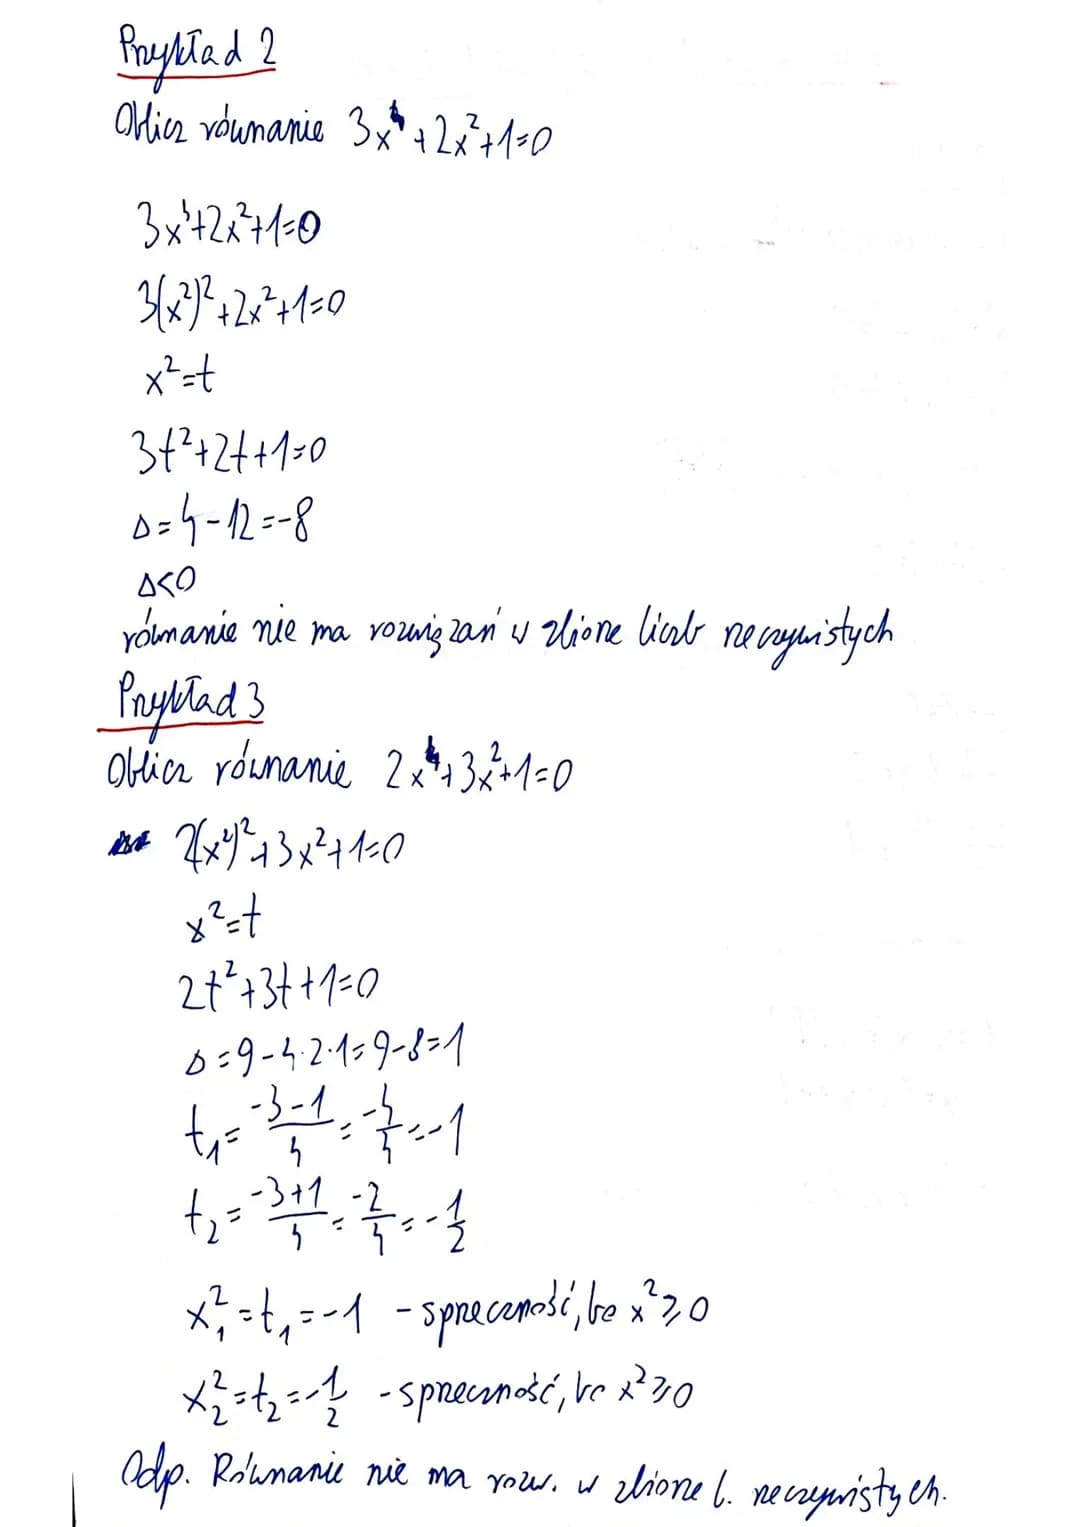 Przykład 2
Oblicz równanie 3x⁴+2x²+1=0
3x⁴+2x²+1=0
3(x²)²+2x²+1=0
x²=t
3t²+2t+1=0
Δ=4-12=-8
Δ<0
równanie nie ma rozwiązań w zbiorze liczb rzeczywistych
Przykład 3
Oblicz równanie 2x⁴+3x²+1=0
2(x²)²+3x²+1=0
x²=t
2t²+3t+1=0
Δ=9-4·2·1=9-8=1
t₁=(-3-1)/4=-4/4=-1
t₂=(-3+1)/4=-2/4=-1/2
x₁²=t₁=-1 - sprzeczność, bo x²≥0
x₂²=t₂=-1/2 - sprzeczność, bo x²≥0
Odp. Równanie nie ma rozw. w zbiorze l. rzeczywistych.